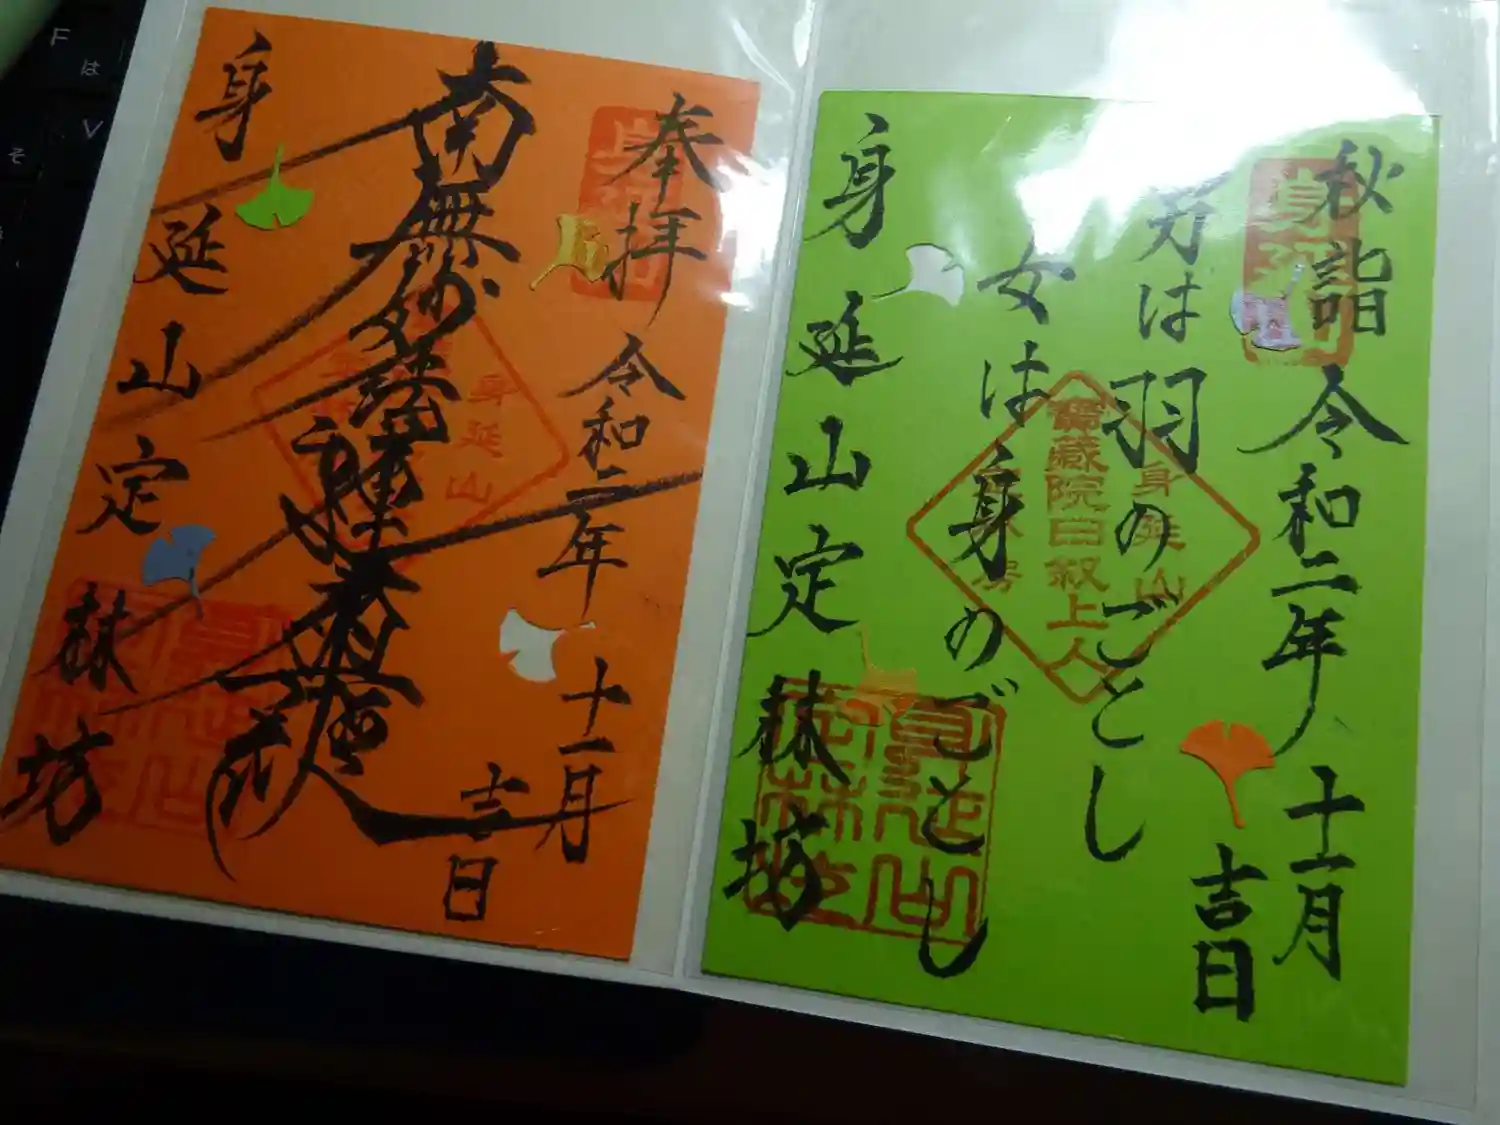 秋詣 令和二年十一月
吉日
男は羽のごとし
女は身のごとし
身延山定林坊
身延山
身延山
蔵院日叙上人
奉拝 令和二年十一月
吉日
南無妙法蓮華経
身延山定林坊
身延山
F
は
V
そ